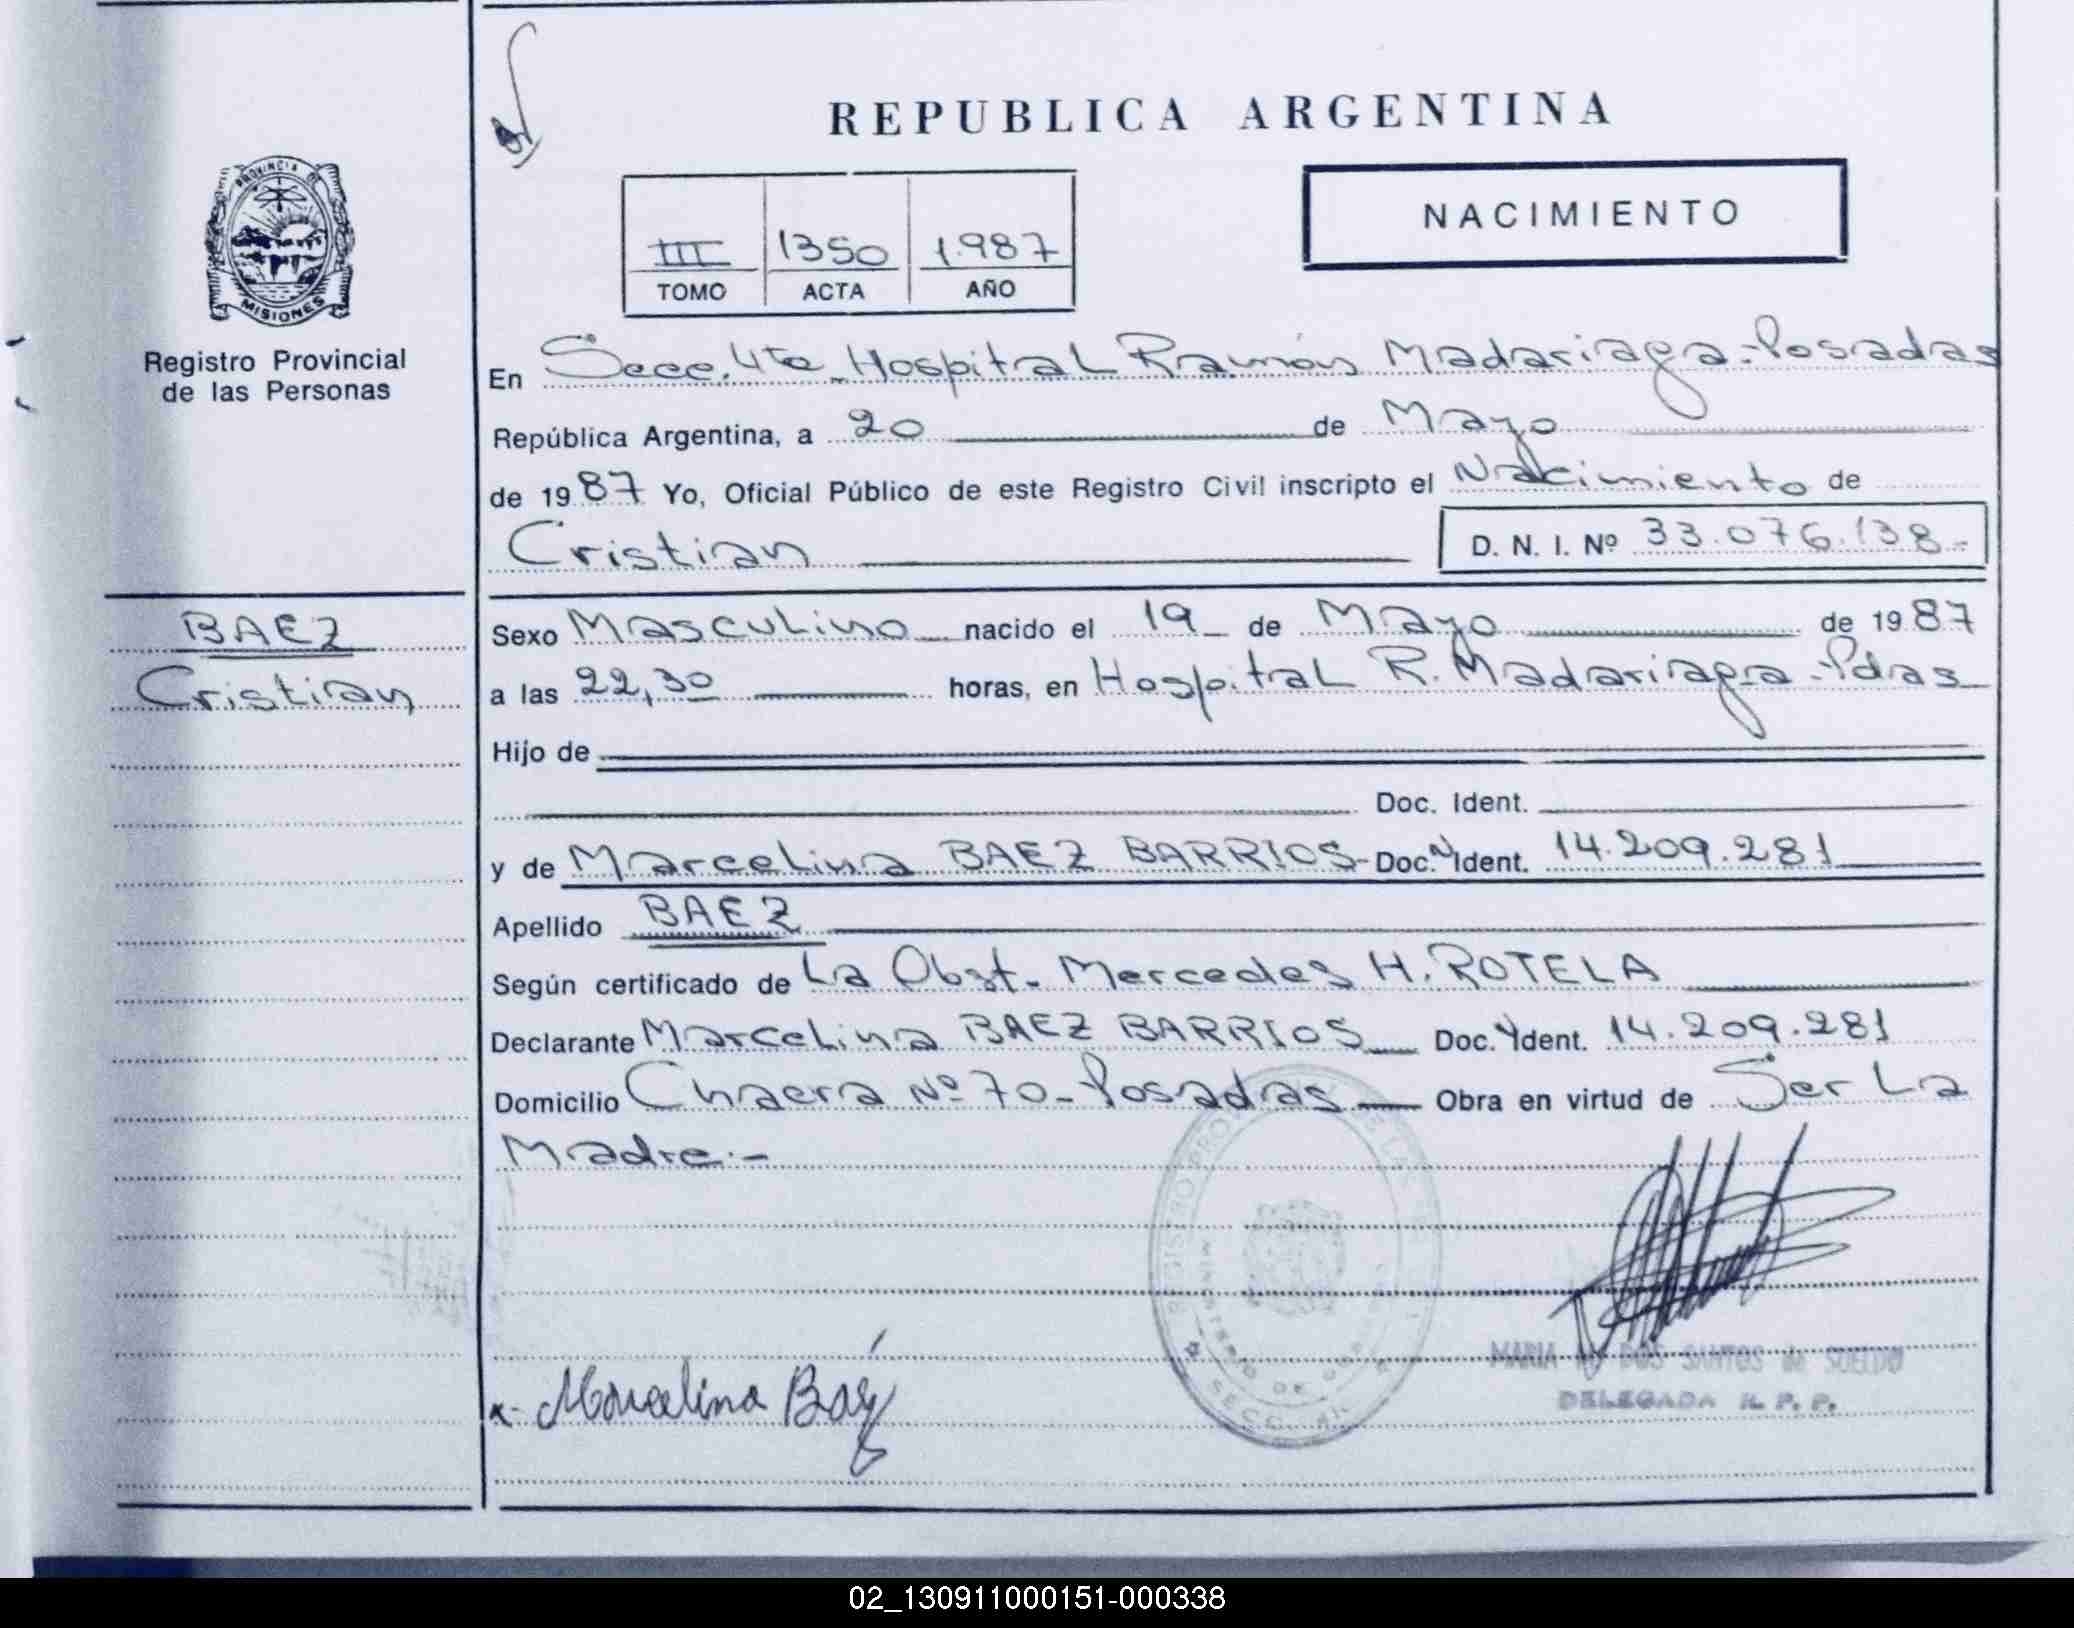 REPUBLICA ARGENTINA
NACIMIENTO
III 1350 1.987
TOMO ACTA AÑO
PROVINCIA DE
MISIONES
Registro Provincial
de las Personas
En Secc. 4ta. Hospital Ramón Madariaga - Posadas
República Argentina, a 20 de Mayo
de 1987 Yo, Oficial Público de este Registro Civil inscripto el Nacimiento de
Cristian D. N. I. Nº 33.076.138.-
BAEZ
Cristian
Sexo Masculino nacido el 19 de Mayo de 1987
a las 22,30 horas, en Hospital R. Madariaga - Pdas
Hijo de
Doc. Ident.
y de Marcelina BAEZ BARRIOS - Doc. Ident. 14.209.281
Apellido BAEZ
Según certificado de La Obst. Mercedes H. ROTELA
Declarante Marcelina BAEZ BARRIOS Doc. Ident. 14.209.281
Domicilio Chacra Nº 70 - Posadas Obra en virtud de Ser La
Madre.-
REGISTRO
SECC.
Marcelina Baéz
MARIA DOS SANTOS de SUELDO
DELEGADA R. P. P.
02_130911000151-000338